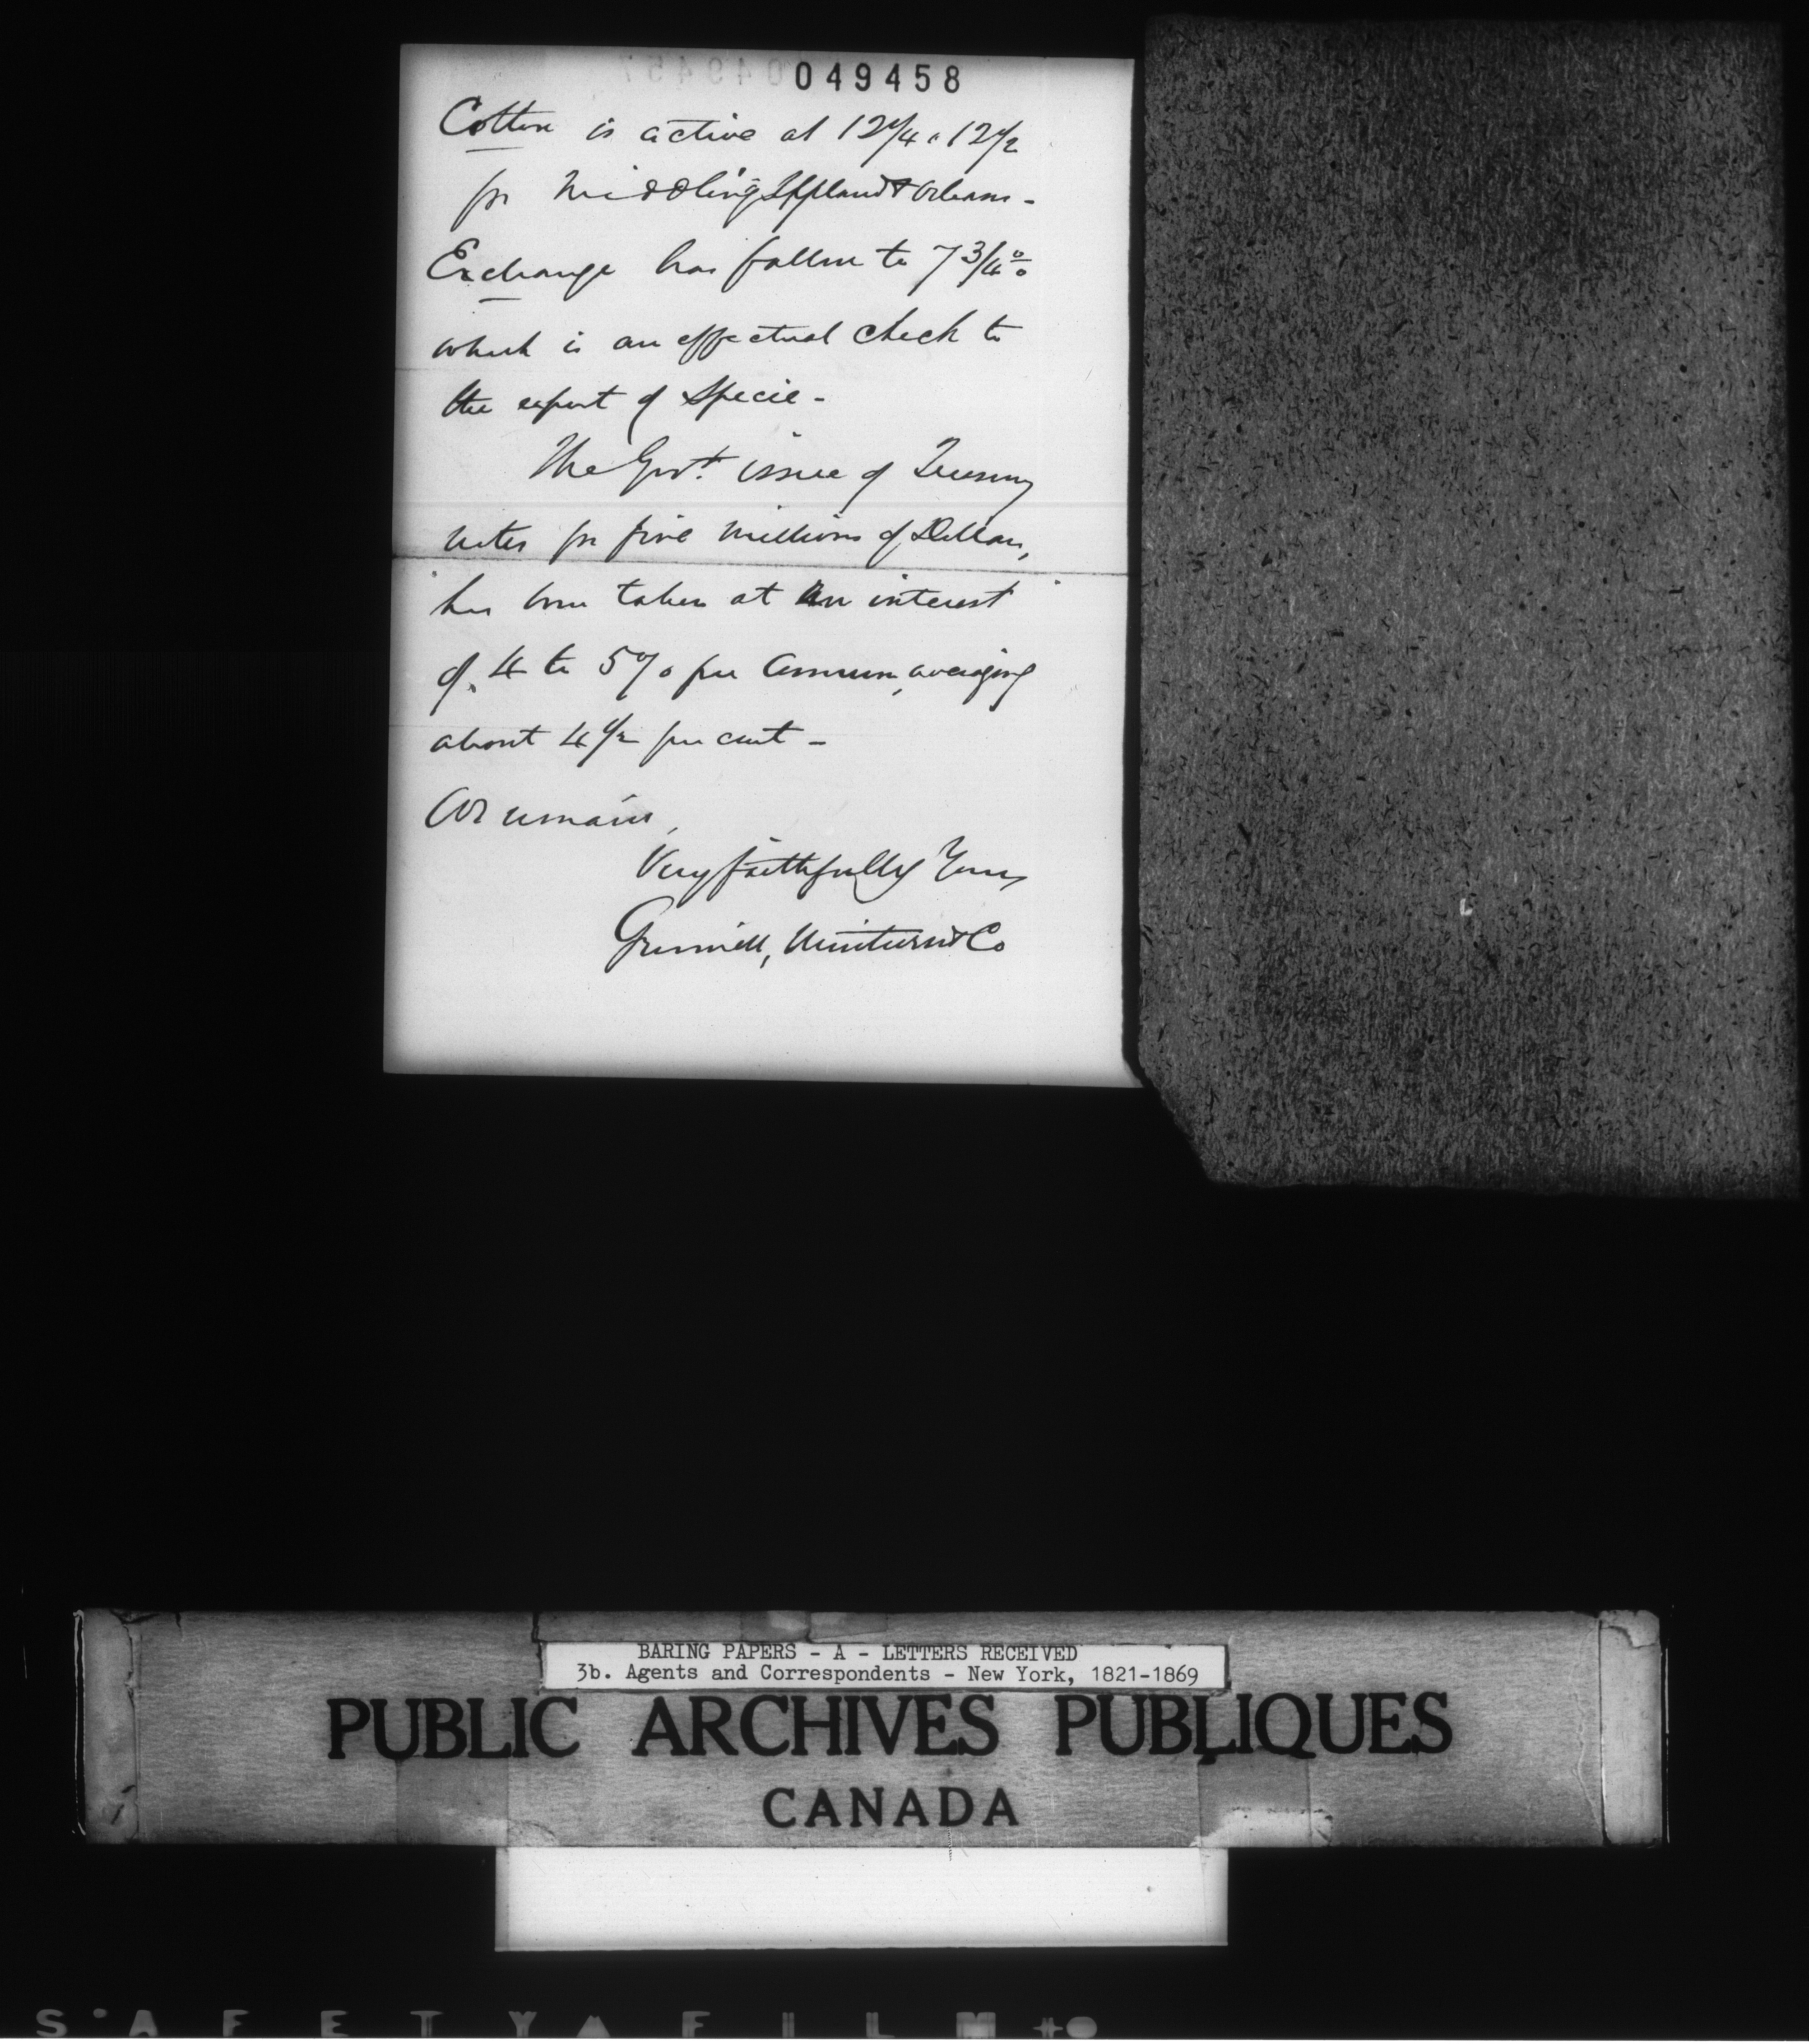 049458
Cotton is active at 12 1/4 a 12 1/2
for Middling Uppland & Orleans -
Exchange has fallen to 7 3/4 %
which is an effectual check to
the export of specie -
The Govt. issue of Treasury
notes for five millions of Dollars,
has been taken at an interest
of 4 to 5% per annum, averaging
about 4 1/2 per cent -
We remain,
Very faithfully Yours
Grinnell, Minturn & Co
BARING PAPERS - A - LETTERS RECEIVED
3b. Agents and Correspondents - New York, 1821-1869
PUBLIC ARCHIVES PUBLIQUES
CANADA
SAFETY FILM